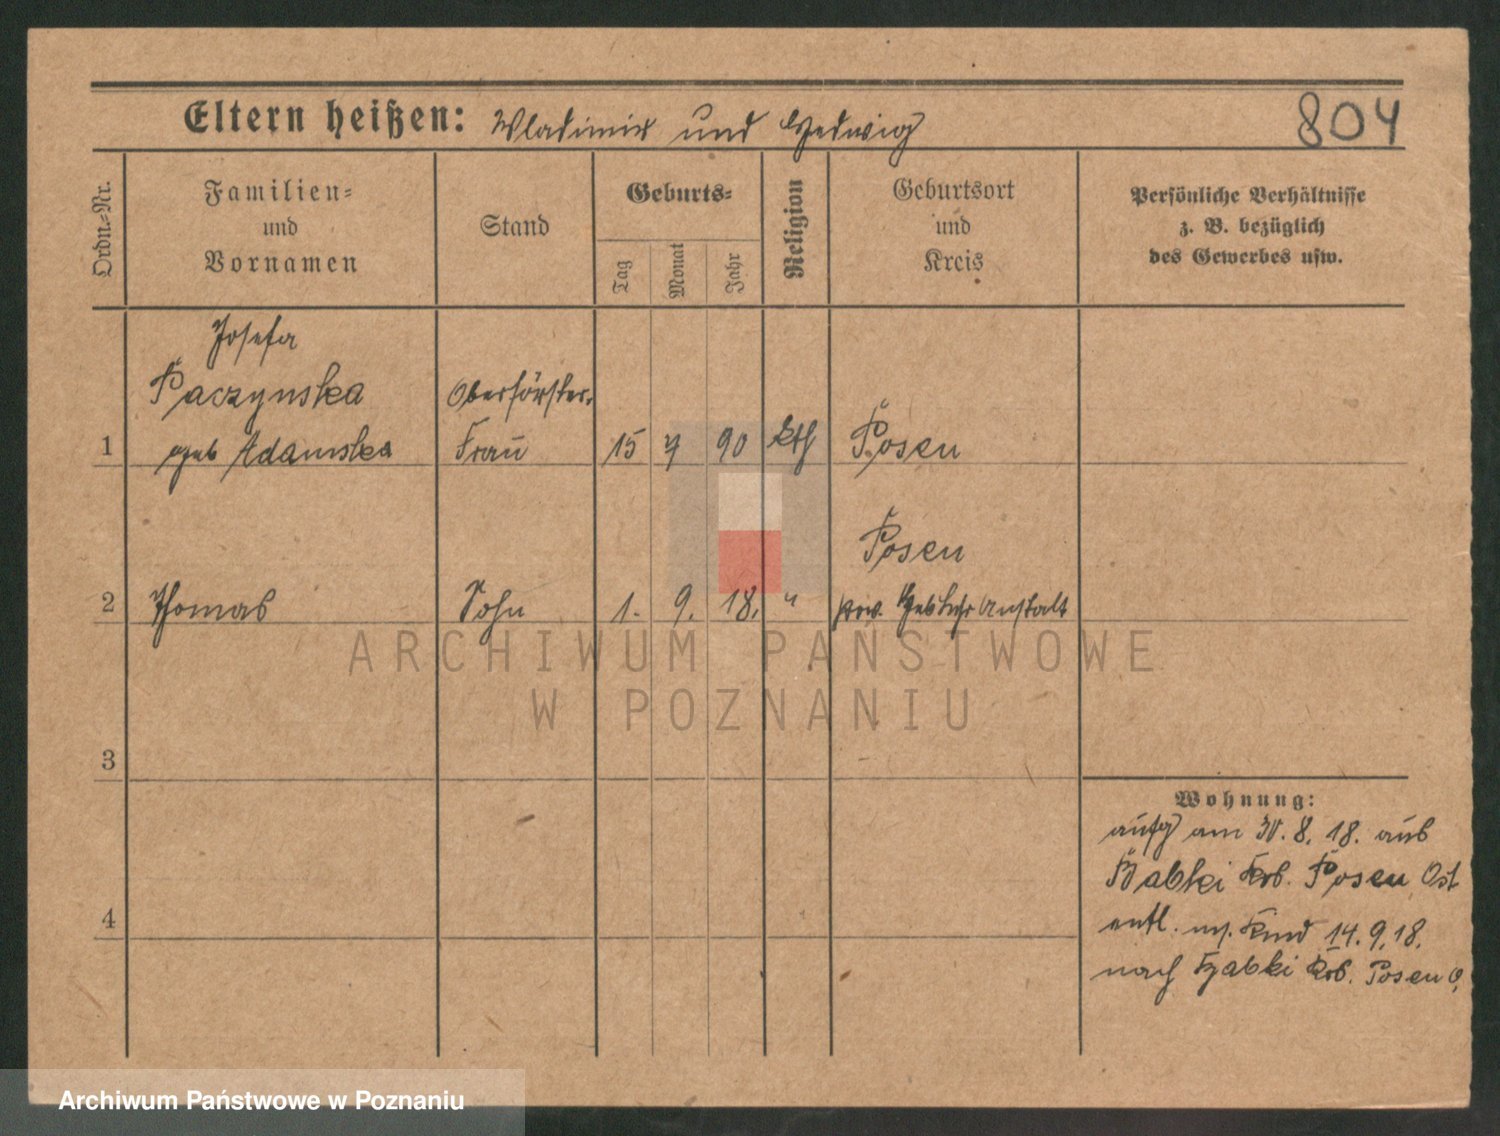 Eltern heißen: Wladimir und Hedwig
804
Ordn.-Nr.
Familien-
und
Vornamen
Stand
Geburts-
Tag
Monat
Jahr
Religion
Geburtsort
und
Kreis
Persönliche Verhältnisse
z. B. bezüglich
des Gewerbes usw.
Josefa
Paczynska
Oberförster.
1 geb Adamska Frau 15 7 90 kth Posen
Posen
2 Thomas Sohn 1. 9. 18. " prov. Heb Lehr Anstalt
ARCHIWUM PAŃSTWOWE
W POZNANIU
3
Wohnung:
aufg am 30. 8. 18. aus
Babki Krs. Posen Ost
4
entl. m. Kind 14. 9. 18.
nach Babki Krs. Posen O.
Archiwum Państwowe w Poznaniu